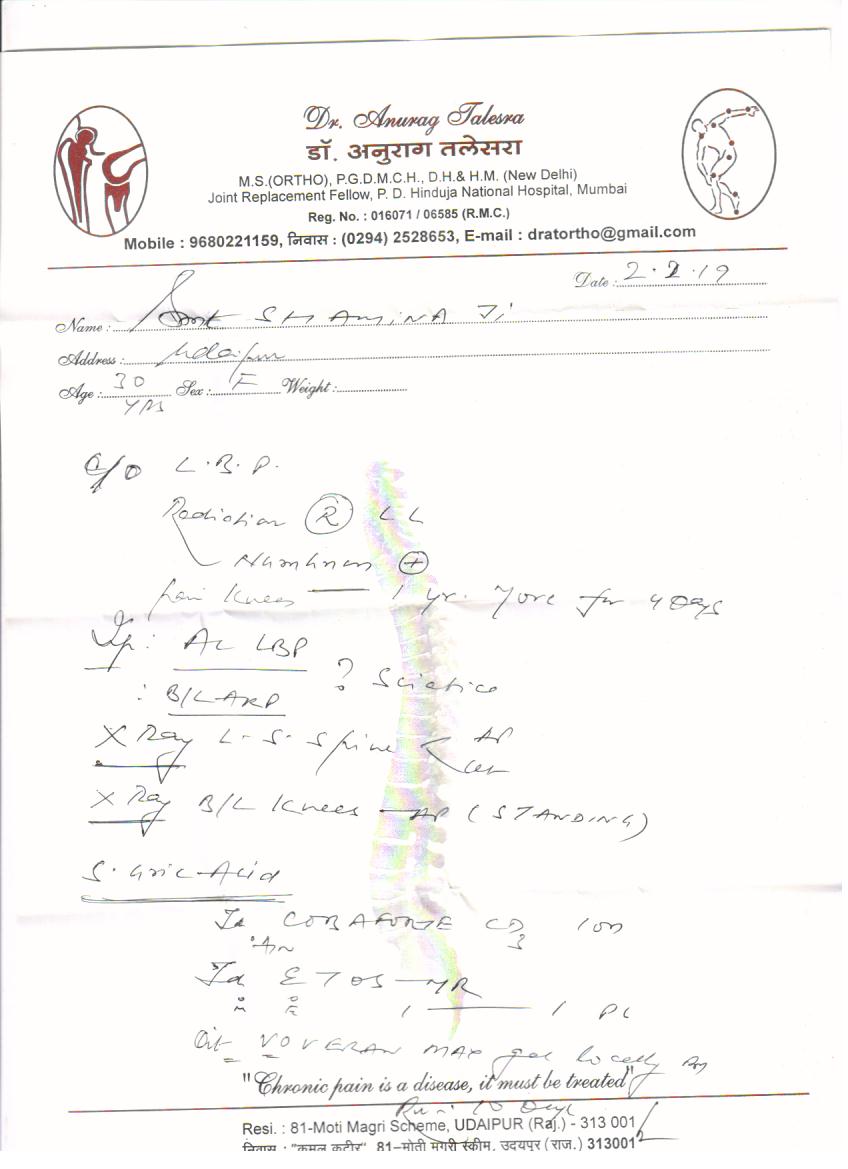 Dr. Anurag Talesra
डॉ. अनुराग तलेसरा
M.S.(ORTHO), P.G.D.M.C.H., D.H.& H.M. (New Delhi)
Joint Replacement Fellow, P. D. Hinduja National Hospital, Mumbai
Reg. No. : 016071 / 06585 (R.M.C.)
Mobile : 9680221159, निवास : (0294) 2528653, E-mail : dratortho@gmail.com
Date : 2.2.19
Name : Smt SHAMINA Ji
Address : Udaipur
Age : 30 yrs Sex : F Weight :
C/O L.B.P.
Radiation R LL
Numbness +
pain knees — 1 yr. more for 4 Days
Ip: AC LBP
? Sciatica
: B/L ARP
X Ray L-S-Spine AP
X Ray B/L Knees — AP (STANDING)
S. Uric-Acid
COBAFORTE CD3 1 OD
ETOS-MR
1 — 1 PC
Oit VOVERAN MAX gel locally
"Chronic pain is a disease, it must be treated"
10 Days
Resi. : 81-Moti Magri Scheme, UDAIPUR (Raj.) - 313 001
निवास : "कमल कुटीर" 81–मोती मगरी स्कीम, उदयपुर (राज.) 313001